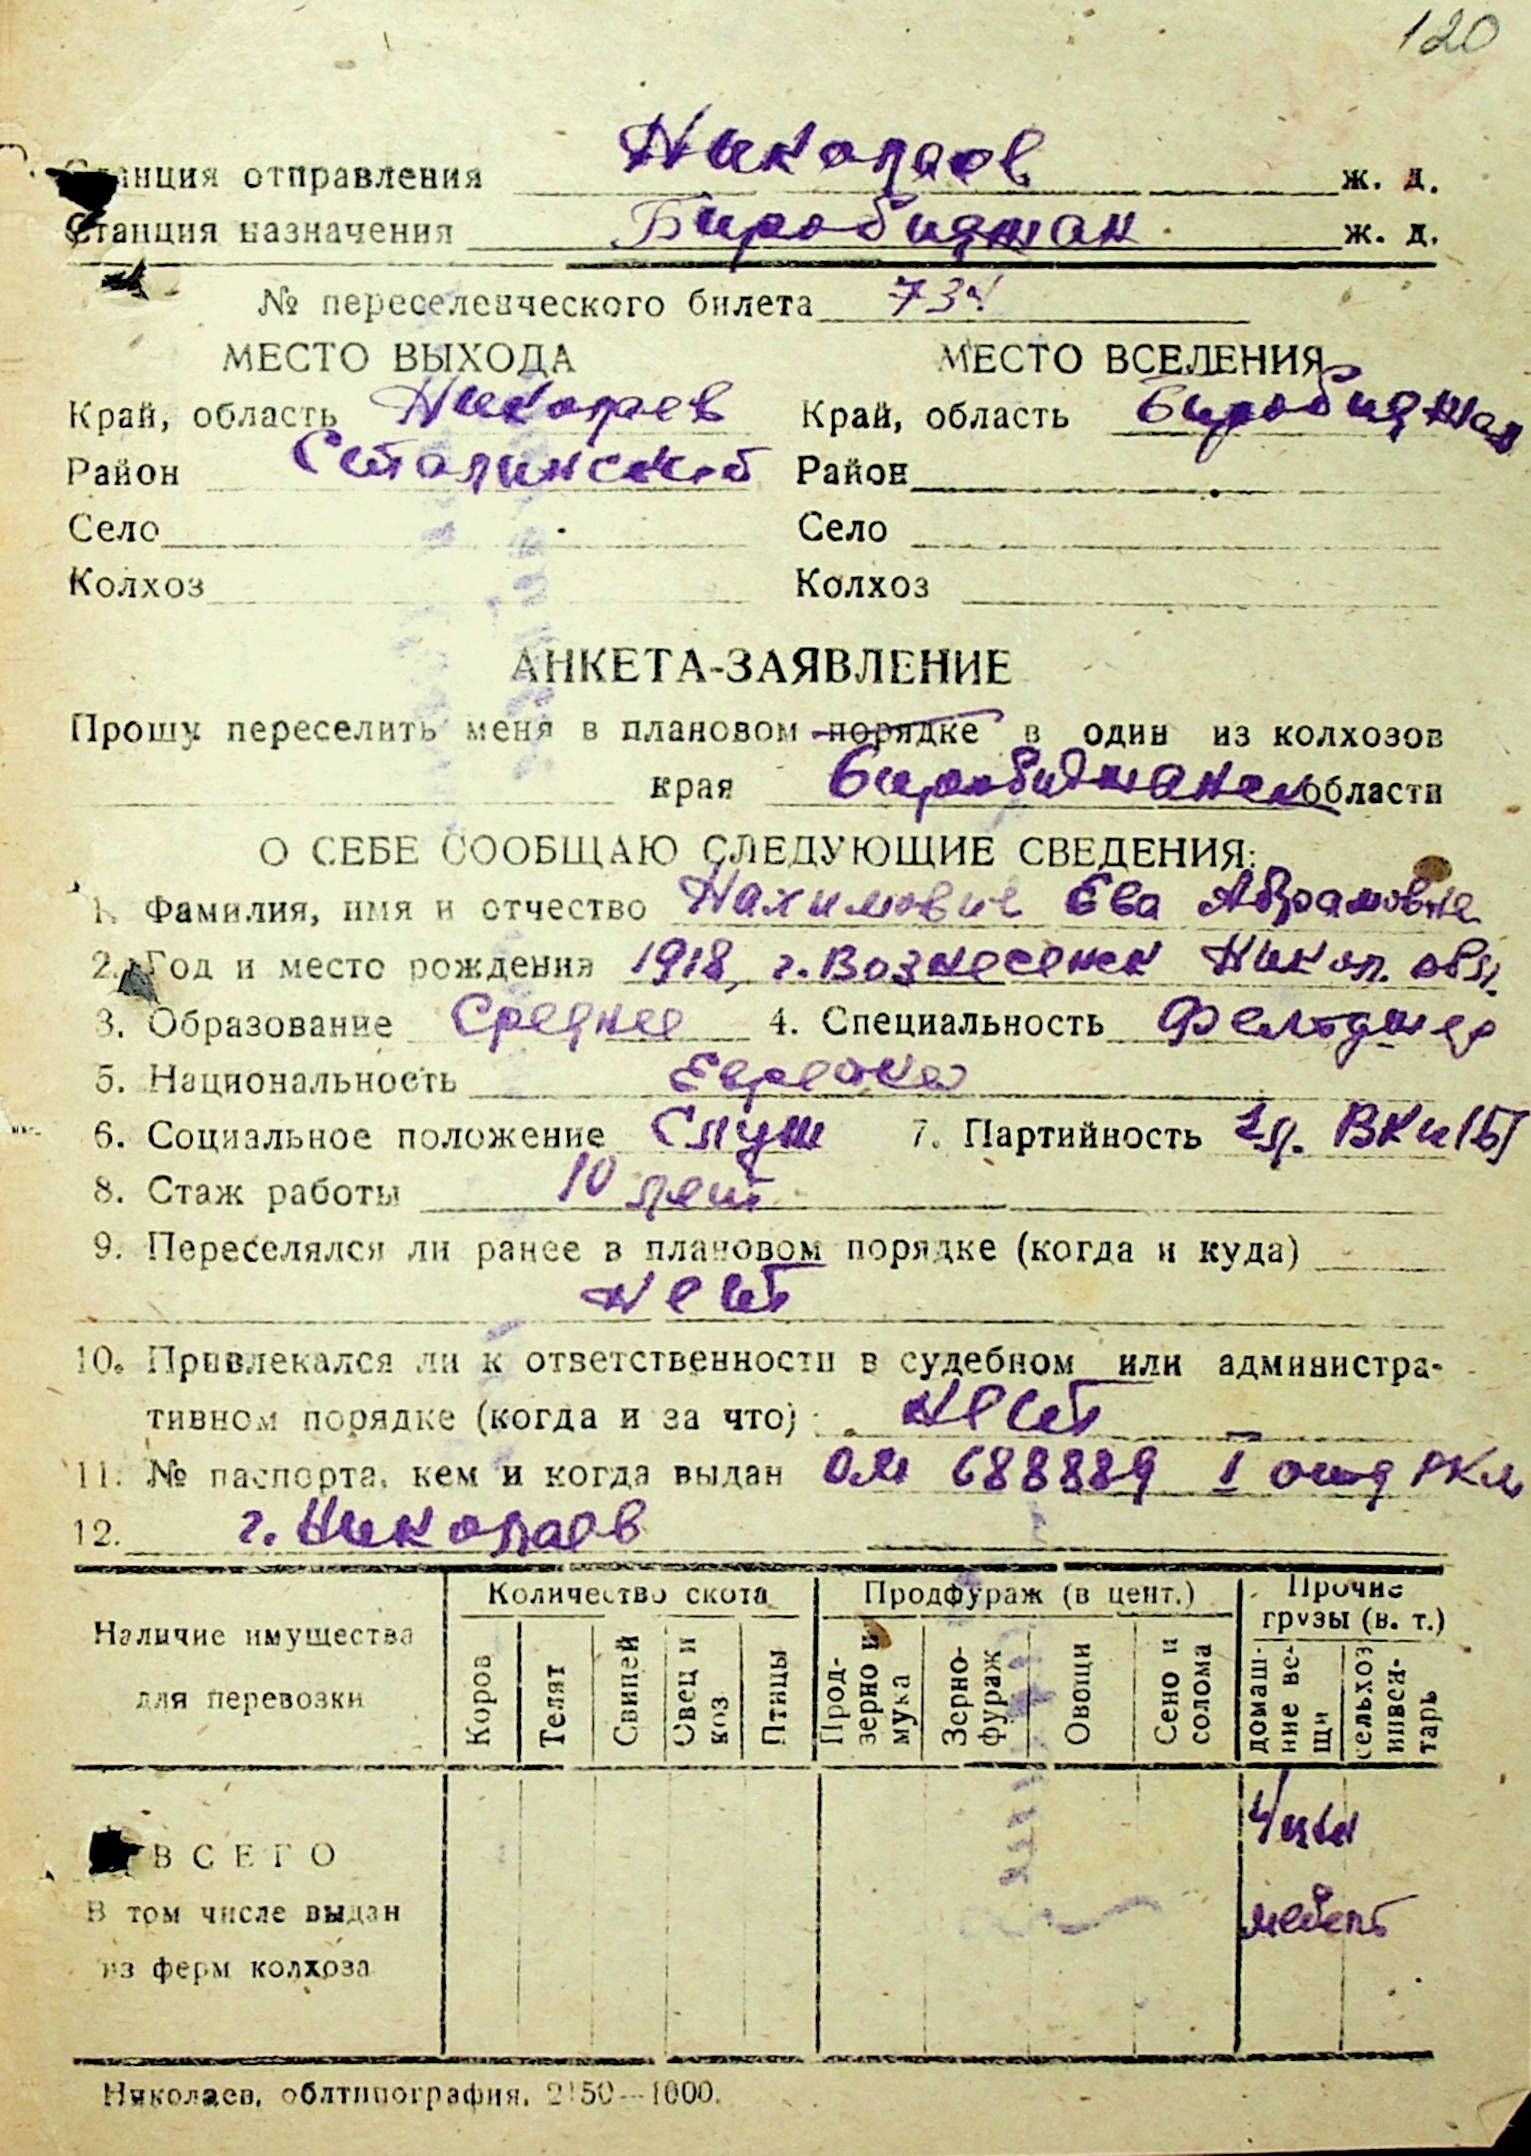 120
Станция отправления Николаев ж. д.
Станция назначения Биробиджан ж. д.
№ переселенческого билета 734
МЕСТО ВЫХОДА МЕСТО ВСЕЛЕНИЯ
Край, область Николаев Край, область Биробиджан
Район Сталинский Район
Село Село
Колхоз Колхоз
АНКЕТА-ЗАЯВЛЕНИЕ
Прошу переселить меня в плановом порядке в один из колхозов
края Биробиджанск области
О СЕБЕ СООБЩАЮ СЛЕДУЮЩИЕ СВЕДЕНИЯ:
1. Фамилия, имя и отчество Нахимович Ева Абрамовна
2. Год и место рождения 1918, г. Вознесенск Никол. обл.
3. Образование Среднее 4. Специальность Фельдшер
5. Национальность Еврейка
6. Социальное положение Служ 7. Партийность ВКП(б)
8. Стаж работы 10 лет
9. Переселялся ли ранее в плановом порядке (когда и куда)
нет
10. Привлекался ли к ответственности в судебном или администра-
тивном порядке (когда и за что) нет
11. № паспорта, кем и когда выдан 688889 I отд РКМ
12. г. Николаев
Наличие имущества для перевозки
Количество скота Продфураж (в цент.) Прочие грузы (в. т.)
Коров Телят Свиней Овец и коз Птицы Прод-зерно и мука Зерно-фураж Овощи Сено и солома домаш-ние ве-щи сельхоз инвен-тарь
ВСЕГО
В том числе выдан мебель
из ферм колхоза
Николаев, облтипография. 2150—1000.